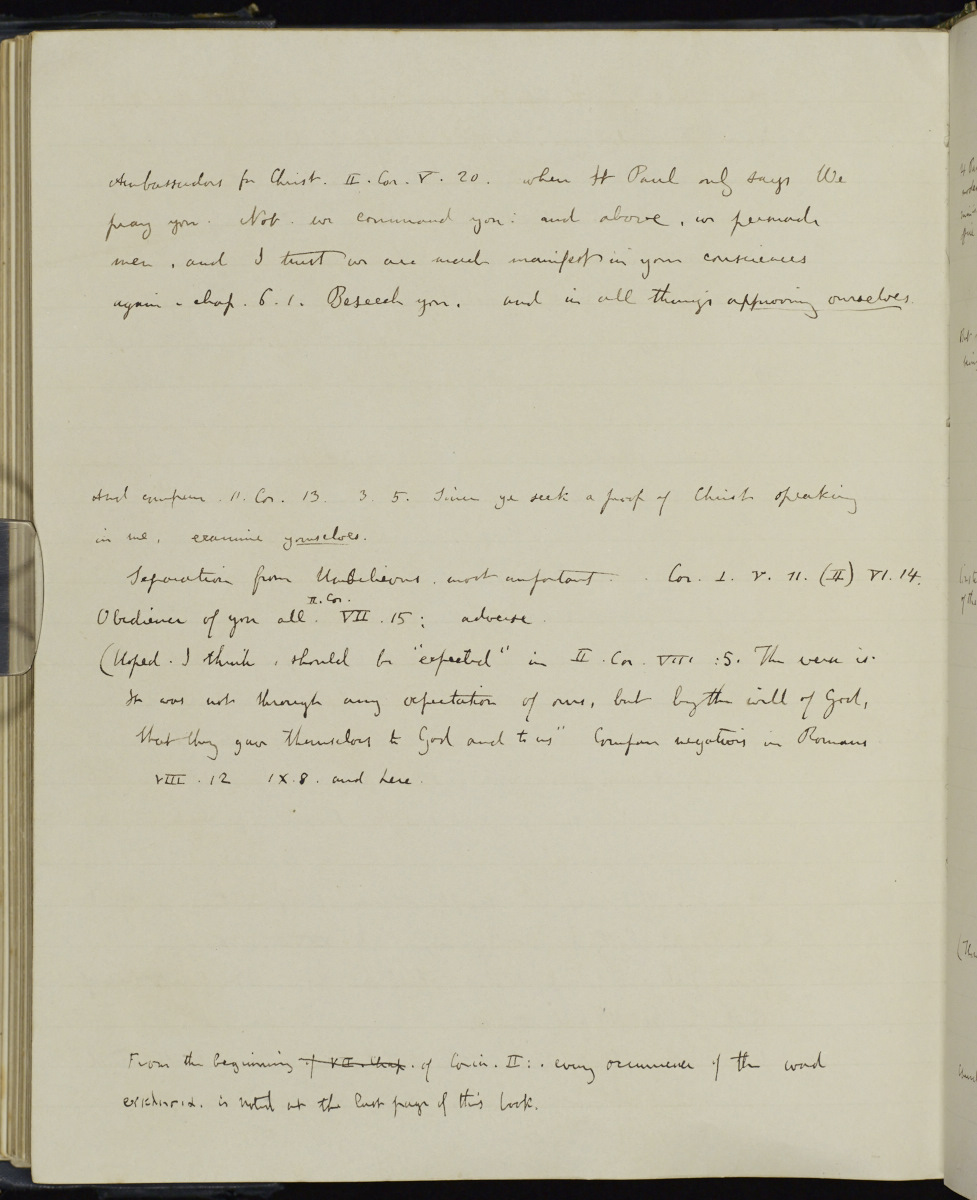 Ambassadors for Christ. II. Cor. V. 20. when St Paul only says We
pray you. Not. we command you: and above, we persuade
men, and I trust we are made manifest in your consciences
again - chap. 6. 1. Beseech you. and in all things approving ourselves.
And compare. 11. Cor. 13. 3. 5. Since ye seek a proof of Christ speaking
in me, examine yourselves.
Separation from Unbelievers. most important. Cor. I. V. 11. (II) VI. 14.
II. Cor.
Obedience of you all. VII. 15: adverse.
(Hoped. I think, should be "expected" in II. Cor. VIII :5. The verse is.
It was not through any expectation of ours, but by the will of God,
that they gave themselves to God and to us" Compare negatives in Romans
VIII. 12 IX. 8. and here.
From the beginning of VII. Chap. of Corin. II: every occurrence of the word
εκκλησια. is noted at the last page of this book.